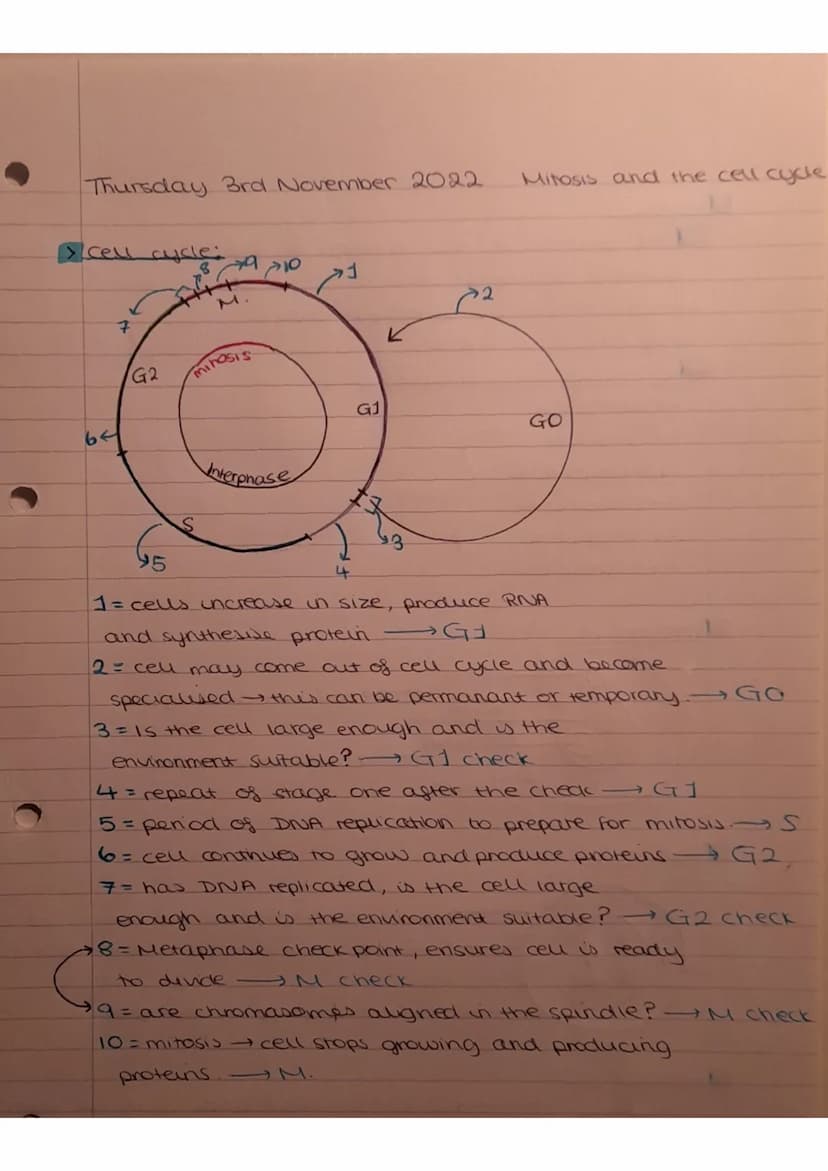 Thursday 3rd November 2022 Mitosis and the cell cycle
> Cell cycle:
8 9 10 1
2
M.
7
mitosis
G2
G1
G0
6
Interphase
S
3
5
4
1 = cells increase in size, produce RNA
and synthesise protein → G1
2 = cell may come out of cell cycle and become
specialised → this can be permanant or temporary. → G0
3 = Is the cell large enough and is the
environment suitable? → G1 check
4 = repeat of stage one after the check → G1
5 = period of DNA replication to prepare for mitosis. → S
6 = cell continues to grow and produce proteins → G2
7 = has DNA replicated, is the cell large
enough and is the environment suitable? → G2 check
8 = Metaphase check point, ensures cell is ready
to divide → M check
9 = are chromasomes aligned in the spindle? → M check
10 = mitosis → cell stops growing and producing
proteins. → M.